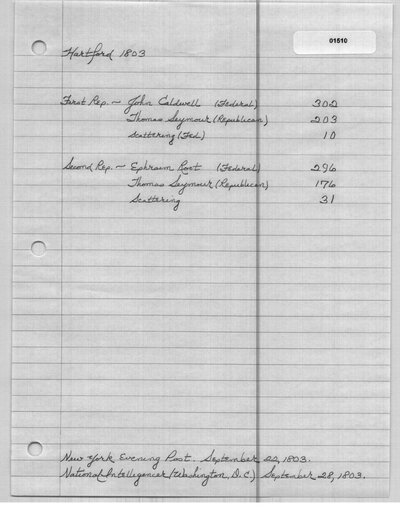 01510
Hartford 1803
First Rep. ~ John Caldwell (Federal) 302
Thomas Seymour (Republican) 203
Scattering (Fed.) 10
Second Rep. ~ Ephraim Root (Federal) 296
Thomas Seymour (Republican) 176
Scattering 31
New York Evening Post. September 22, 1803.
National Intelligencer (Washington, D.C.) September 28, 1803.